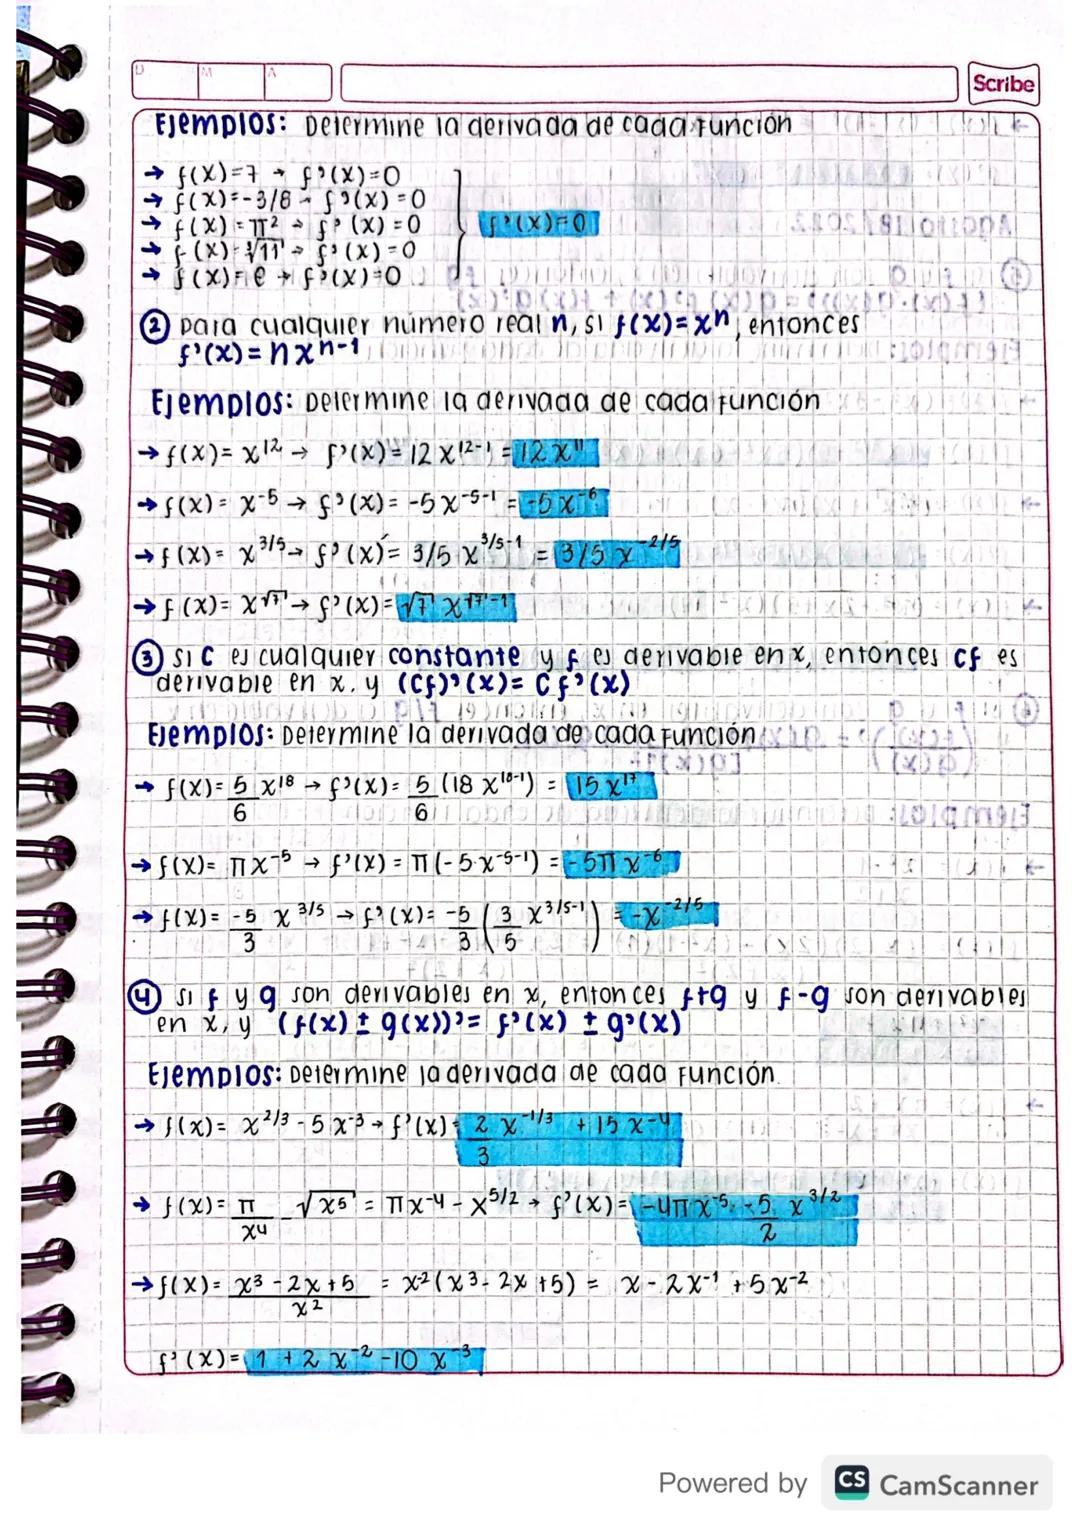 D M A
Scribe
Ejemplos: Determine la derivada de cada función
→ f(x)=7 → f'(x)=0
→ f(x)=-3/8 → f'(x)=0
→ f(x)=π² → f'(x)=0
f'(x)=0
→ f(x)=∛11 → f'(x)=0
→ f(x)=e → f'(x)=0
② para cualquier número real n, si f(x)=xⁿ, entonces
f'(x)=nxⁿ⁻¹
Ejemplos: Determine la derivada de cada función
→ f(x)= x¹² → f'(x)=12x¹²⁻¹ = 12x¹¹
→ f(x)= x⁻⁵ → f'(x)= -5x⁻⁵⁻¹ = -5x⁻⁶
→ f(x)= x^3/5 → f'(x)= 3/5 x^3/5-1 = 3/5 x^-2/5
→ f(x)= x^√7 → f'(x)= √7 x^√7-1
③ si C es cualquier constante y f es derivable en x, entonces cf es
derivable en x, y (cf)'(x)= C f'(x)
Ejemplos: Determine la derivada de cada función
→ f(x)= 5/6 x¹⁸ → f'(x)= 5/6 (18x¹⁸⁻¹) = 15x¹⁷
→ f(x)= πx⁻⁵ → f'(x)= π(-5·x⁻⁵⁻¹) = -5πx⁻⁶
→ f(x)= -5/3 x^3/5 → f'(x)= -5/3 (3/5 x^3/5-1) = -x^-2/5
④ si f y g son derivables en x, entonces f+g y f-g son derivables
en x, y (f(x) ± g(x))'= f'(x) ± g'(x)
Ejemplos: Determine la derivada de cada función.
→ f(x)= x^2/3 - 5x⁻³ → f'(x)= 2/3 x^-1/3 + 15x⁻⁴
→ f(x)= π/x⁴ - √x⁵ = πx⁻⁴ - x^5/2 → f'(x)= -4πx⁻⁵ - 5/2 x^3/2
→ f(x)= x³-2x+5/x² = x⁻²(x³-2x+5) = x-2x⁻¹+5x⁻²
f'(x)= 1+2x⁻²-10x⁻³
Powered by CS CamScanner